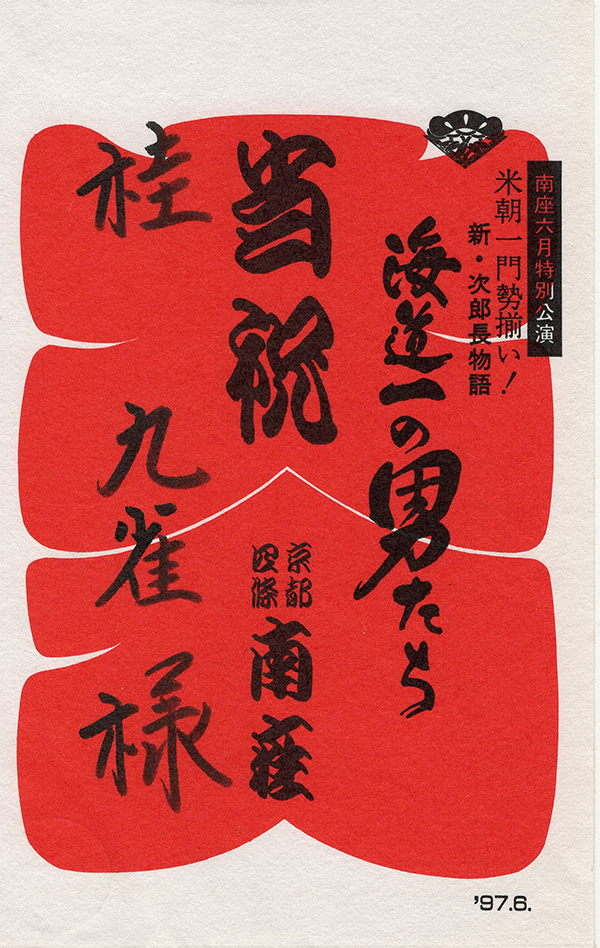 南座六月特別公演
米朝一門勢揃い！
新・次郎長物語
海道一の男たち
当祝
京都
四條
南座
桂 九雀 様
'97.6.